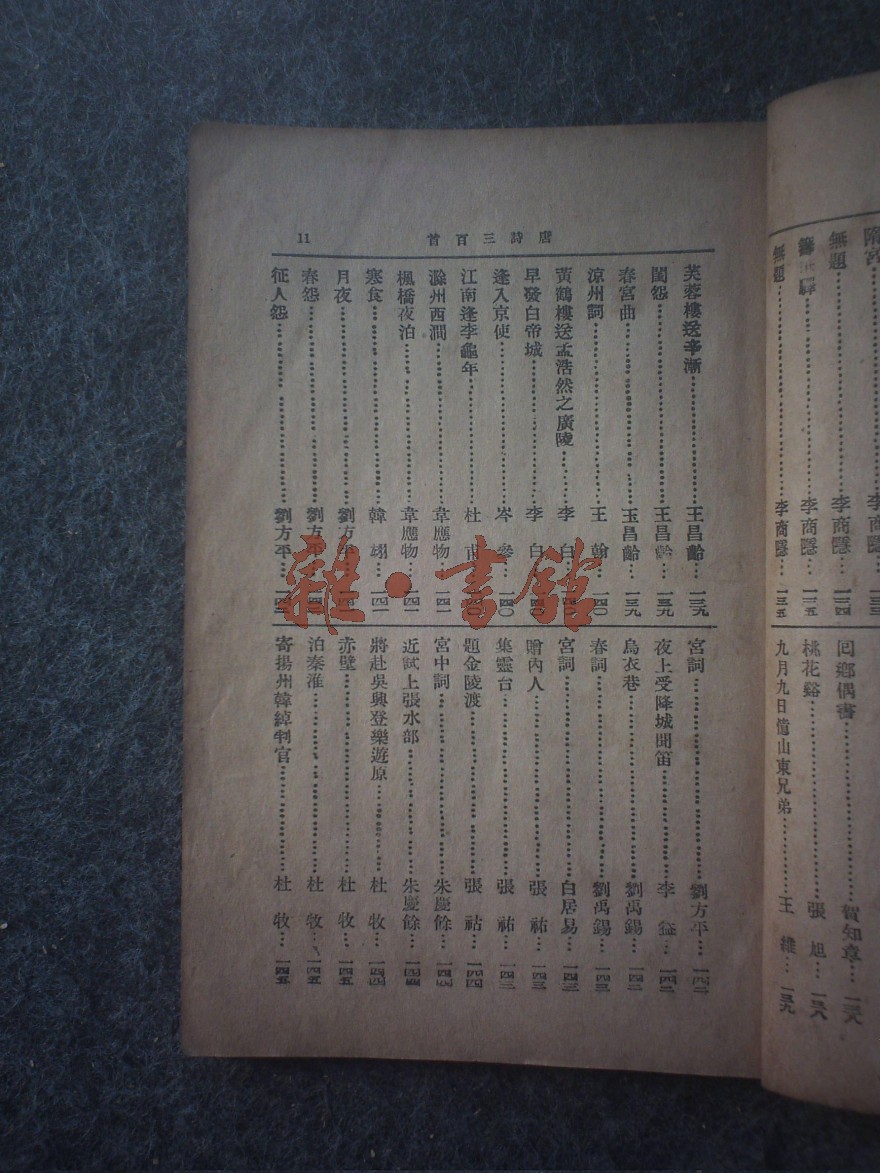 隋宮
無題……李商隱…一三四
李商隱…一三五
無題……李商隱…一三五
回鄉偶書……賀知章…一三八
桃花谿……張旭…一三八
九月九日憶山東兄弟……王維…一三九
唐詩三百首
11
芙蓉樓送辛漸……王昌齡…一三九
閨怨……王昌齡…一三九
春宮曲……王昌齡…一三九
涼州詞……王翰…一四〇
黃鶴樓送孟浩然之廣陵……李白…一四〇
早發白帝城……李白…一四〇
逢入京使……岑參…一四〇
江南逢李龜年……杜甫…一四〇
滁州西澗……韋應物…一四一
楓橋夜泊……韋應物…一四一
寒食……韓翃…一四一
月夜……劉方平…一四一
春怨……劉方平…一四二
征人怨……劉方平…一四二
宮詞……劉方平…一四二
夜上受降城聞笛……李益…一四二
烏衣巷……劉禹錫…一四二
春詞……劉禹錫…一四三
宮詞……白居易…一四三
贈內人……張祜…一四三
集靈台……張祜…一四三
題金陵渡……張祜…一四四
宮中詞……朱慶餘…一四四
近試上張水部……朱慶餘…一四四
將赴吳興登樂遊原……杜牧…一四四
赤壁……杜牧…一四五
泊秦淮……杜牧…一四五
寄揚州韓綽判官……杜牧…一四五
雜·書館